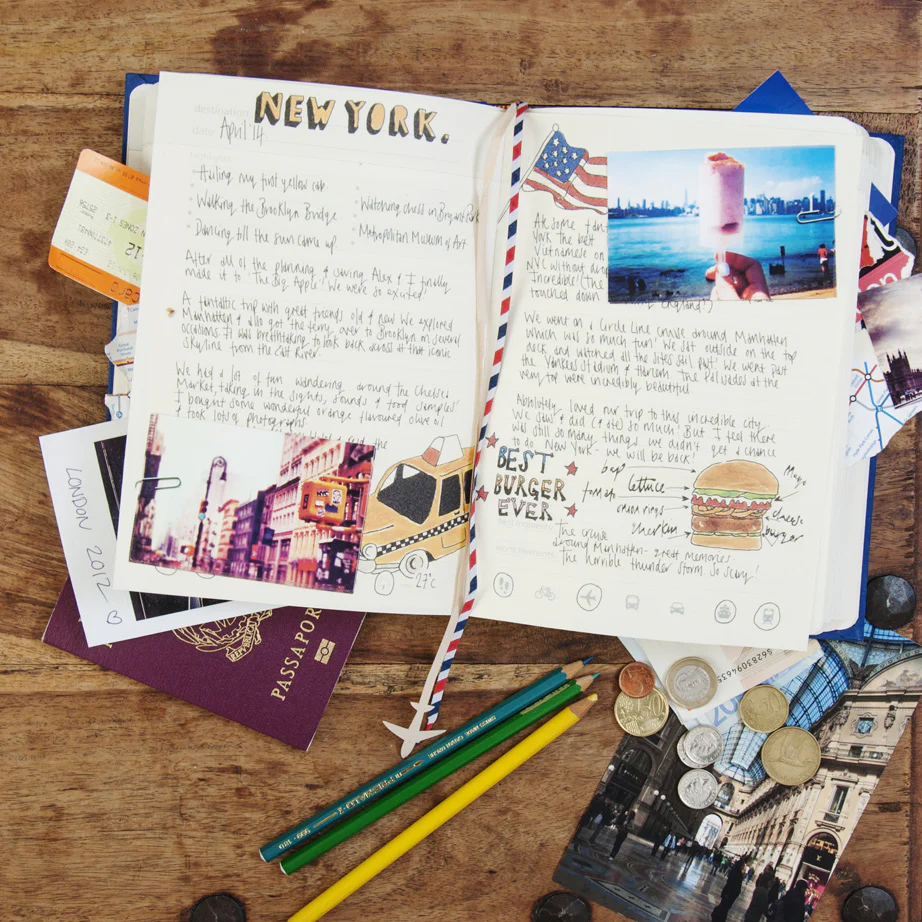 destination NEW YORK.
date April '14
Hailing my first yellow cab
Walking the Brooklyn Bridge
Dancing till the sun came up
Watching chess in Bryant Park
Metropolitan Museum of Art
After all of the planning & saving Alex & I finally
made it to 'The Big Apple'! We were so excited
A fantastic trip with great friends old & new. We explored
Manhattan & also got the ferry over to Brooklyn on several
occasions. It was breathtaking to look back across at that iconic
skyline from the East River.
We had a lot of fun wandering around the Chelsea
Market taking in the sights, sounds & food samples!
I bought some wonderful orange flavoured olive oil
& took lots of photographs.
27°c
At some
York the best
Vietnamese
NYC without
Incredible! (The
touched down
England!)
We went on a Circle Line cruise around Manhattan
which was so much fun! We sat outside on the top
deck and watched all the sites sail past. We went past
the Yankees Stadium & Harlem. The Palisades at the
very top were incredibly beautiful
Absolutely loved our trip to this incredible city.
We saw & did (& ate) so much! But I feel there
was still so many things we didn't get a chance
to do New York - we will be back!
BEST
BURGER
EVER
bap
tomato
lettuce
onion rings
gherkin
Mayo
cheese
burger
The cruise
around Manhattan - great memories.
The horrible thunder storm. So scary!
LONDON 2012
PASSAPOR
REPUBBLICA